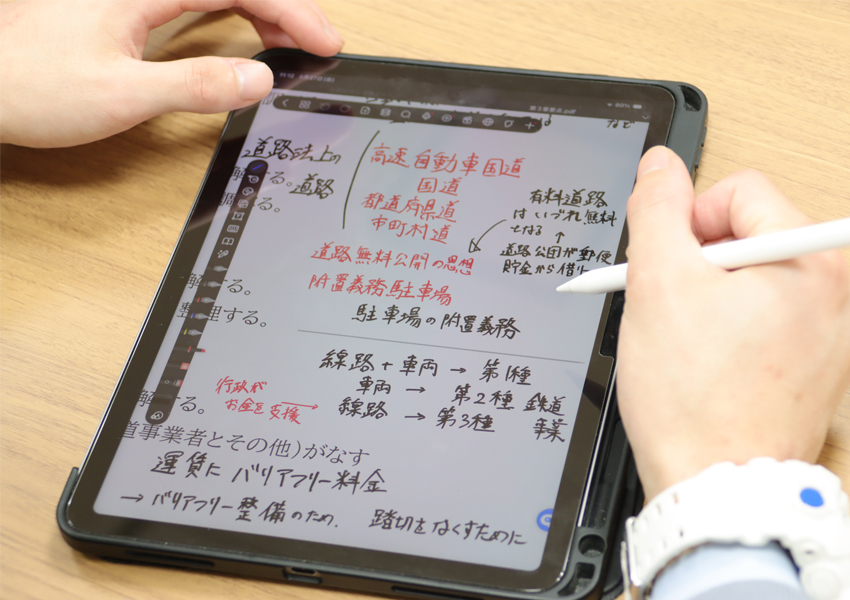 80%
など
道路法上の
道路
る。
る。
高速自動車国道
国道
都道府県道
市町村道
有料道路
はいづれ無料
となる ↑
道路公団が郵便
貯金から借り
道路無料公開の思想
附置義務駐車場
駐車場の附置義務
解する。
整理する。
線路＋車両 → 第1種
車両 → 第2種 鉄道
線路 → 第3種 事業
行政が
お金を支援
解する。
道事業者とその他)がなす
運賃に バリアフリー料金
→ バリアフリー整備のため. 踏切をなくすために